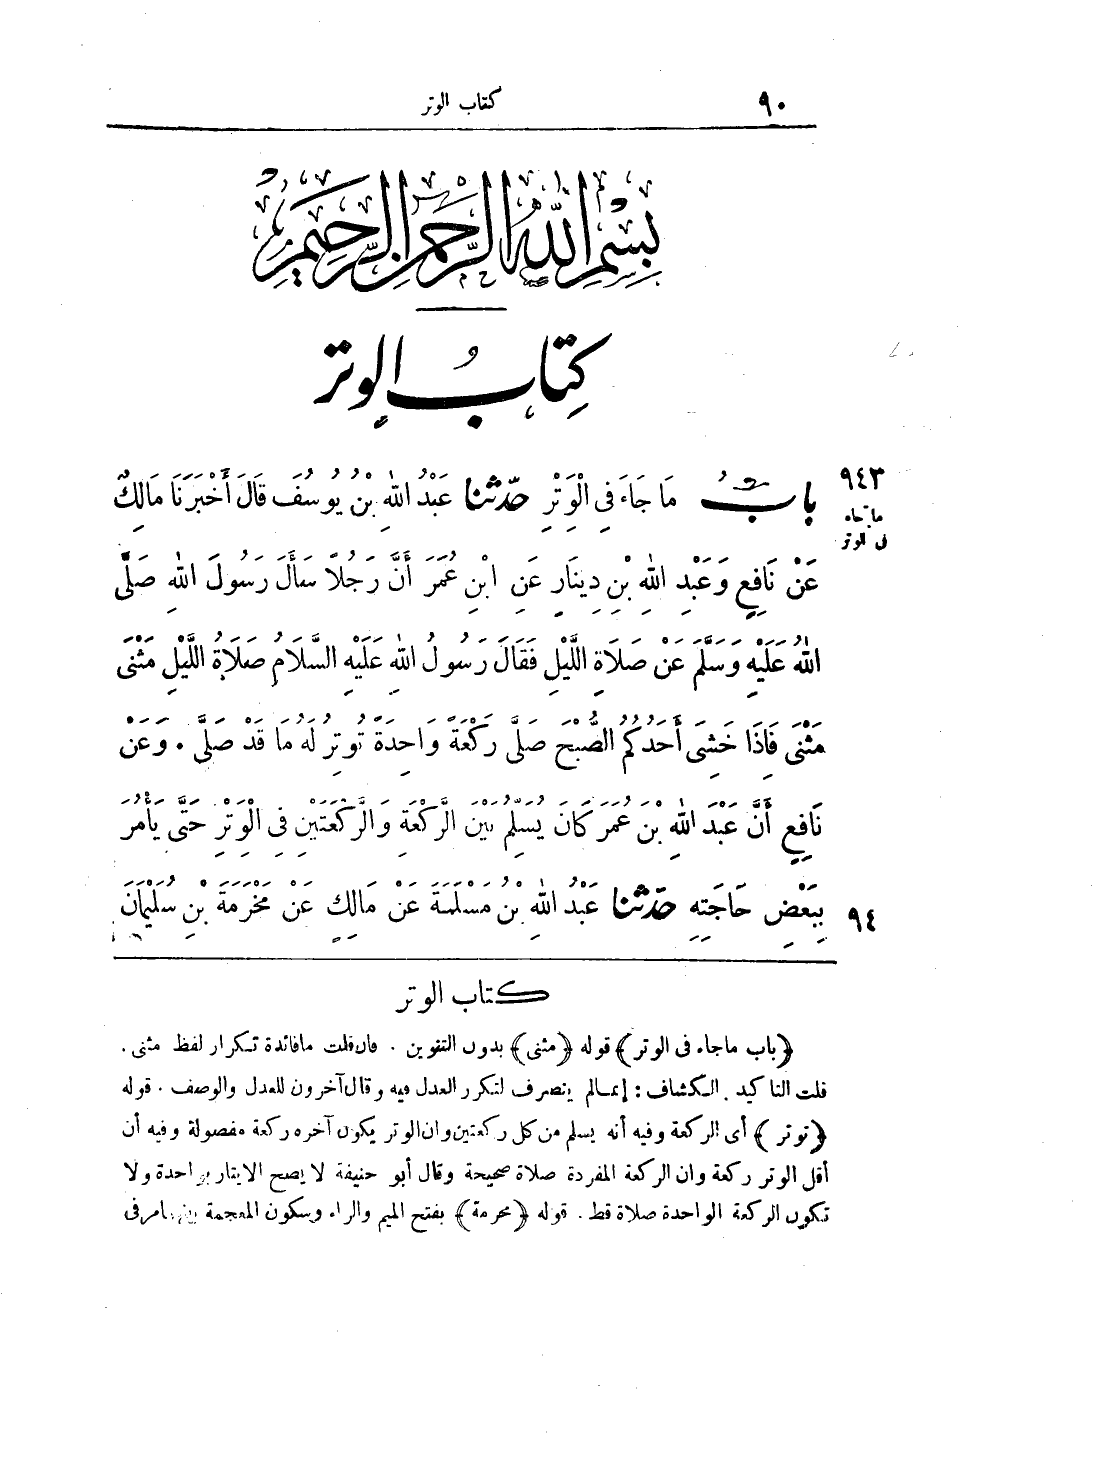 ٩٠ كتاب الوتر
بِسْمِ اللهِ الرَّحْمنِ الرَّحِيمِ
كِتَابُ الوِتر
٩٤٣
ما جاء
فى الوتر
بابُ مَا جَاءَ فِى الْوِتْرِ حدّثنا عَبْدُ اللهِ بْنُ يُوسُفَ قَالَ أَخْبَرَنَا مَالِكٌ
عَنْ نَافِعٍ وَعَبْدِ اللهِ بْنِ دِينَارٍ عَنِ ابْنِ عُمَرَ أَنَّ رَجُلاً سَأَلَ رَسُولَ اللهِ صَلَّى
اللهُ عَلَيْهِ وَسَلَّمَ عَنْ صَلَاةِ اللَّيْلِ فَقَالَ رَسُولُ اللهِ عَلَيْهِ السَّلَامُ صَلَاةُ اللَّيْلِ مَثْنَى
مَثْنَى فَإِذَا خَشِىَ أَحَدُكُمُ الصُّبْحَ صَلَّى رَكْعَةً وَاحِدَةً تُوتِرُ لَهُ مَا قَدْ صَلَّى . وَعَنْ
نَافِعٍ أَنَّ عَبْدَ اللهِ بْنَ عُمَرَ كَانَ يُسَلِّمُ بَيْنَ الرَّكْعَةِ وَالرَّكْعَتَيْنِ فِى الْوِتْرِ حَتَّى يَأْمُرَ
٩٤
بِبَعْضِ حَاجَتِهِ حدّثنا عَبْدُ اللهِ بْنُ مَسْلَمَةَ عَنْ مَالِكٍ عَنْ مَخْرَمَةَ بْنِ سُلَيْمَانَ
كتاب الوتر
﴿باب ما جاء فى الوتر﴾ قوله ﴿مثنى﴾ بدون التنوين . فان قلت ما فائدة تكرار لفظ مثنى .
قلت التاكيد . الكشاف : إنما لم ينصرف لتكرر العدل فيه وقال آخرون للعدل والوصف . قوله
﴿توتر﴾ أى الركعة وفيه أنه يسلم من كل ركعتين وان الوتر يكون آخره ركعة مفصولة وفيه أن
أقل الوتر ركعة وان الركعة المفردة صلاة صحيحة وقال أبو حنيفة لا يصح الايتار بواحدة ولا
تكون الركعة الواحدة صلاة قط . قوله ﴿مخرمة﴾ بفتح الميم والراء وسكون المعجمة بينهما مر فى